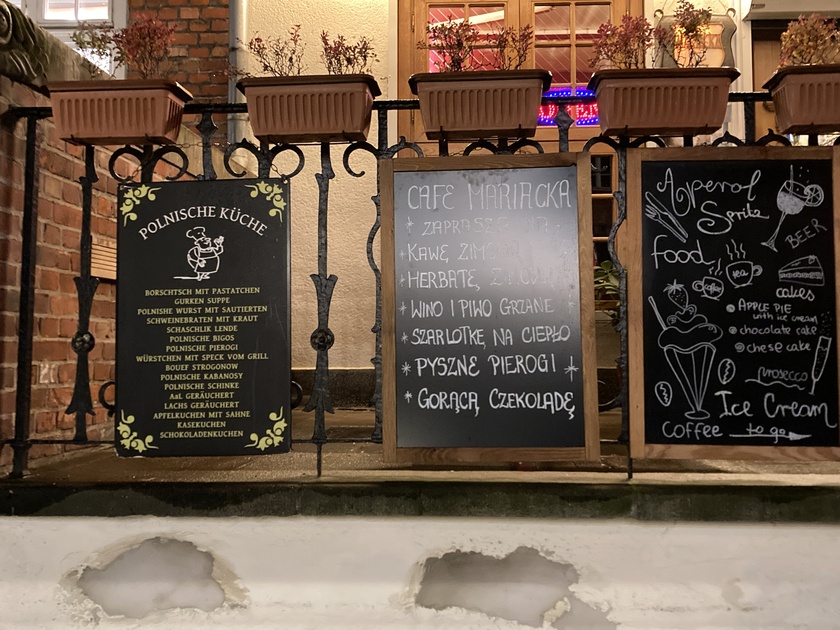 POLNISCHE KÜCHE
BORSCHTSCH MIT PASTATCHEN
GURKEN SUPPE
POLNISHE WURST MIT SAUTIERTEN
SCHWEINEBRATEN MIT KRAUT
SCHASCHLIK LENDE
POLNISCHE BIGOS
POLNISCHE PIEROGI
WÜRSTCHEN MIT SPECK VOM GRILL
BOUEF STROGONOW
POLNISCHE KABANOSY
POLNISCHE SCHINKE
AaL GERÄUCHERT
LACHS GERÄUCHERT
APFELKUCHEN MIT SAHNE
KASEKUCHEN
SCHOKOLADENKUCHEN
CAFE MARIACKA
KAWĘ
HERBATĘ
* WINO I PIWO GRZANE
* SZARLOTKĘ NA CIEPŁO
* PYSZNE PIEROGI *
* GORĄCĄ CZEKOLADĘ
Aperol
Spritz
BEER
food
coffee
tea
cakes
APPLE PIE
with ice cream
chocolate cake
chese cake
prosecco
Ice Cream
Coffee to go